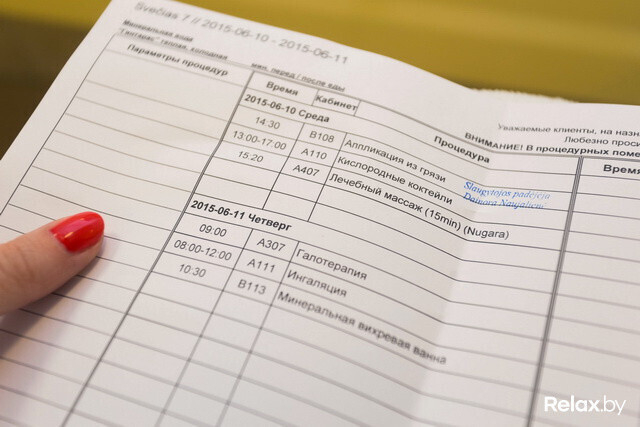 Svečias 7 // 2015-06-10 - 2015-06-11
Минеральная вода
"Гинтарас" теплая, холодная
мил. перед / после еды
Параметры процедур
Время
Кабинет
Процедура
2015-06-10 Среда
14:30 B108 Аппликация из грязи
13:00-17:00 A110 Кислородные коктейли
15:20 A407 Лечебный массаж (15min) (Nugara)
2015-06-11 Четверг
09:00 A307 Галотерапия
08:00-12:00 A111 Ингаляция
10:30 B113 Минеральная вихревая ванна
Slaugytojos padėjėja
Уважаемые клиенты, на назн
Любезно проси
ВНИМАНИЕ! В процедурных поме
Время
Relax.by